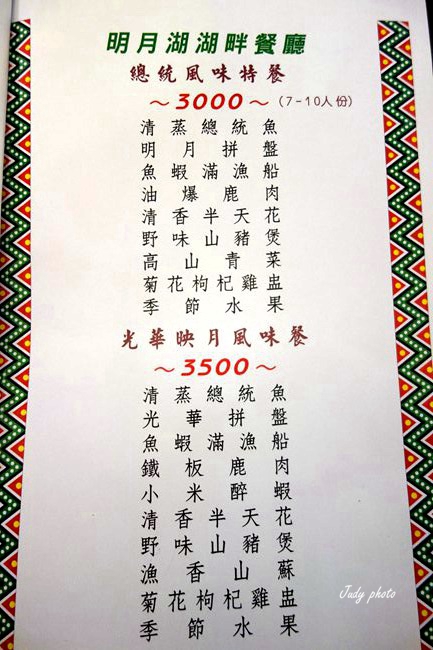 明月湖湖畔餐廳
總統風味特餐
～3000～（7-10人份）
清蒸總統魚
明月拼盤
魚蝦滿漁船
油爆鹿肉
清香半天花
野味山豬煲
高山青菜
菊花枸杞雞盅
季節水果
光華映月風味餐
～3500～
清蒸總統魚
光華拼盤
魚蝦滿漁船
鐵板鹿肉
小米醉蝦
清香半天花
野味山豬煲
漁香山蘇
菊花枸杞雞盅
季節水果
Judy photo